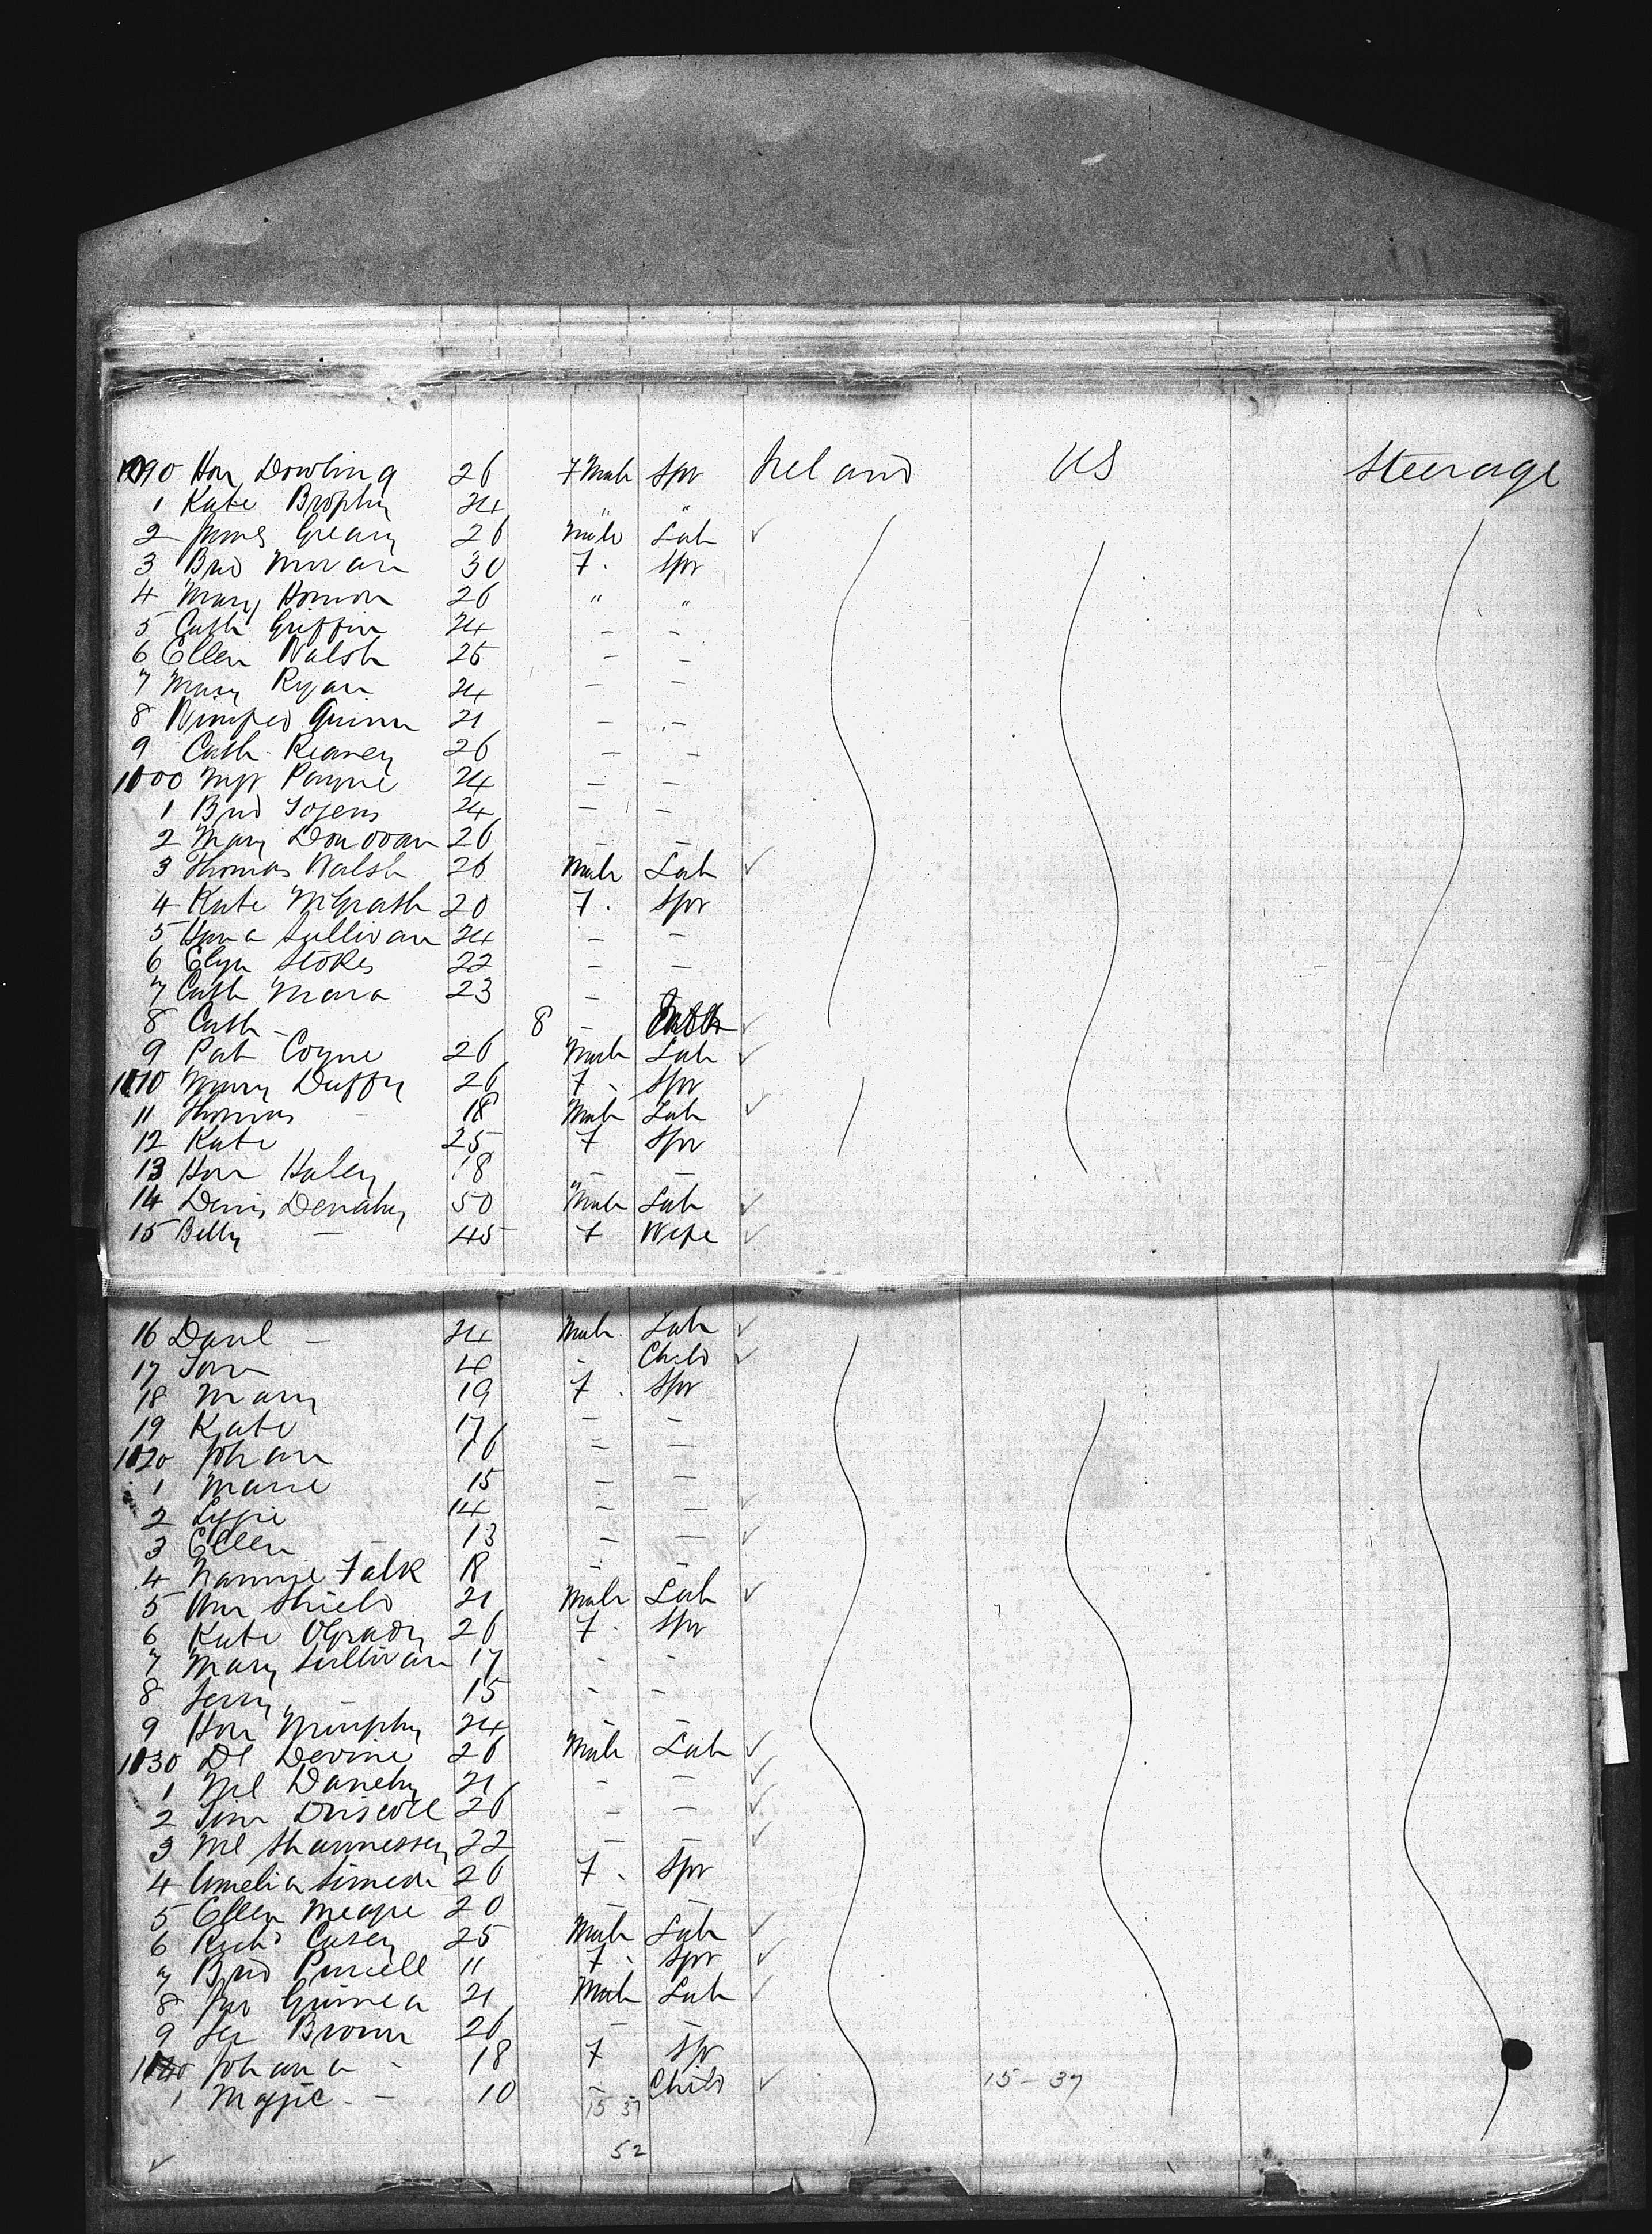 1090 Hon Dowling 26 F Male Spr Ireland US Steerage
1 Kate Brophy 24 " "
2 James Greany 26 Male Lab ✓
3 Brid Moran 30 F. Spr
4 Mary 26 " "
5 Cath Griffin 24 - -
6 Ellen Walsh 25 - -
7 Mary Ryan 24 - -
8 Winifred Quinn 21 - -
9 Cath Keaney 26 - -
1000 Mgt Payne 24 - -
1 Brid 24 - -
2 Mary Donovan 26 - -
3 Thomas Walsh 26 Male Lab ✓
4 Kate McGrath 20 F. Spr
5 Hona Sullivan 24 - -
6 Eliza Stokes 22 - -
7 Cath Mara 23 -
8 Cath - 8 - ✓
9 Pat Coyne 26 Male Lab ✓
1010 Mary Duffy 26 F. Spr
11 Thomas - 18 Male Lab ✓
12 Kate 25 F Spr
13 Hon Haley 18 - -
14 Denis Denahy 50 Male Lab ✓
15 Betty - 45 F Wife ✓
16 Danl - 24 Male Lab ✓
17 Tom 4 - Child ✓
18 Mary 19 F. Spr
19 Kate 17 - -
1020 Johan 16 - -
1 Marie 15 - -
2 Lizzie 14 - - ✓
3 Ellen 13 - - ✓
4 Nannie Falk 18 - -
5 Wm Shield 21 Male Lab ✓
6 Kate OGrady 26 F. Spr
7 Mary Sullivan 17 - -
8 Jerry - 15 - -
9 Hon Murphy 24 - -
1030 Dl Devine 26 Male Lab ✓
1 Ml Danehy 21 - - ✓
2 Tim Driscoll 26 - - ✓
3 Ml Shannessey 22 - - ✓
4 Amelia 26 F. Spr
5 Ellen 20 - -
6 Richd Casey 25 Male Lab ✓
7 Brid Purcell 11 F. Spr ✓
8 Guinea 21 Male Lab ✓
9 Brown 26 - -
1040 Johana - 18 F Spr
1 Maggie - 10 - Child ✓ 15 - 37
15 37
52
✓